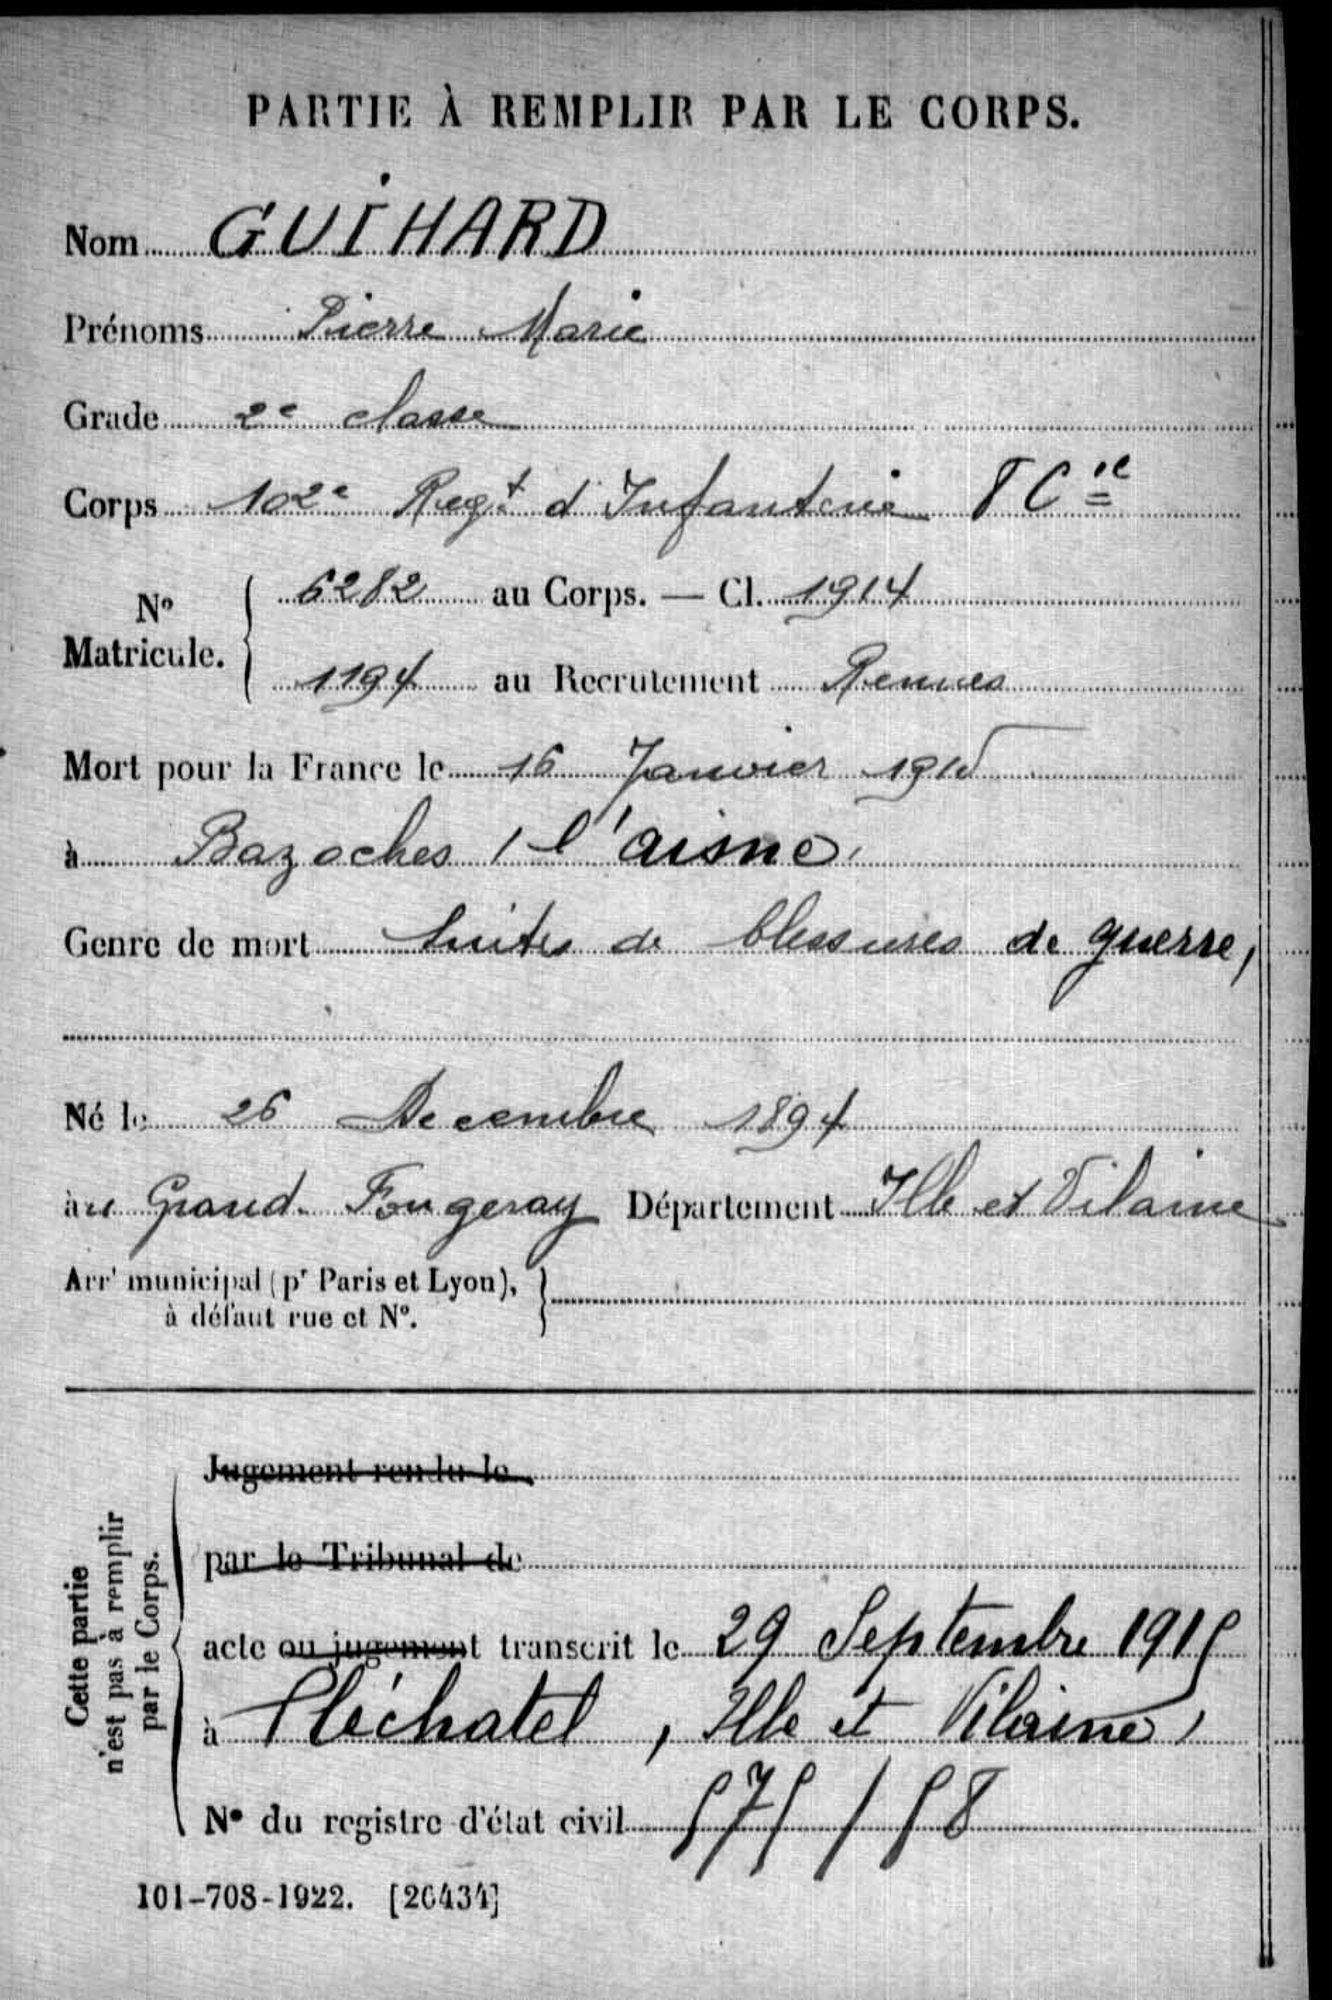 PARTIE À REMPLIR PAR LE CORPS.
Nom GUIHARD
Prénoms Pierre Marie
Grade 2e classe
Corps 102e Regt d'Infanterie 8 Cie
No Matricule. 6282 au Corps. — Cl. 1914
1194 au Recrutement Rennes
Mort pour la France le 16 Janvier 1915
à Bazoches / l'aisne,
Genre de mort Suites de blessures de guerre,
Né le 26 Decembre 1894
au Grand-Fougeray Département Ille et Vilaine
Arrt municipal (pr Paris et Lyon),
à défaut rue et N°.
Cette partie
n'est pas à remplir
par le Corps.
Jugement rendu le
par le Tribunal de
acte ou jugement transcrit le 29 Septembre 1915
à Pléchatel, Ille et Vilaine,
N° du registre d'état civil 575/58
101-708-1922. [26434]